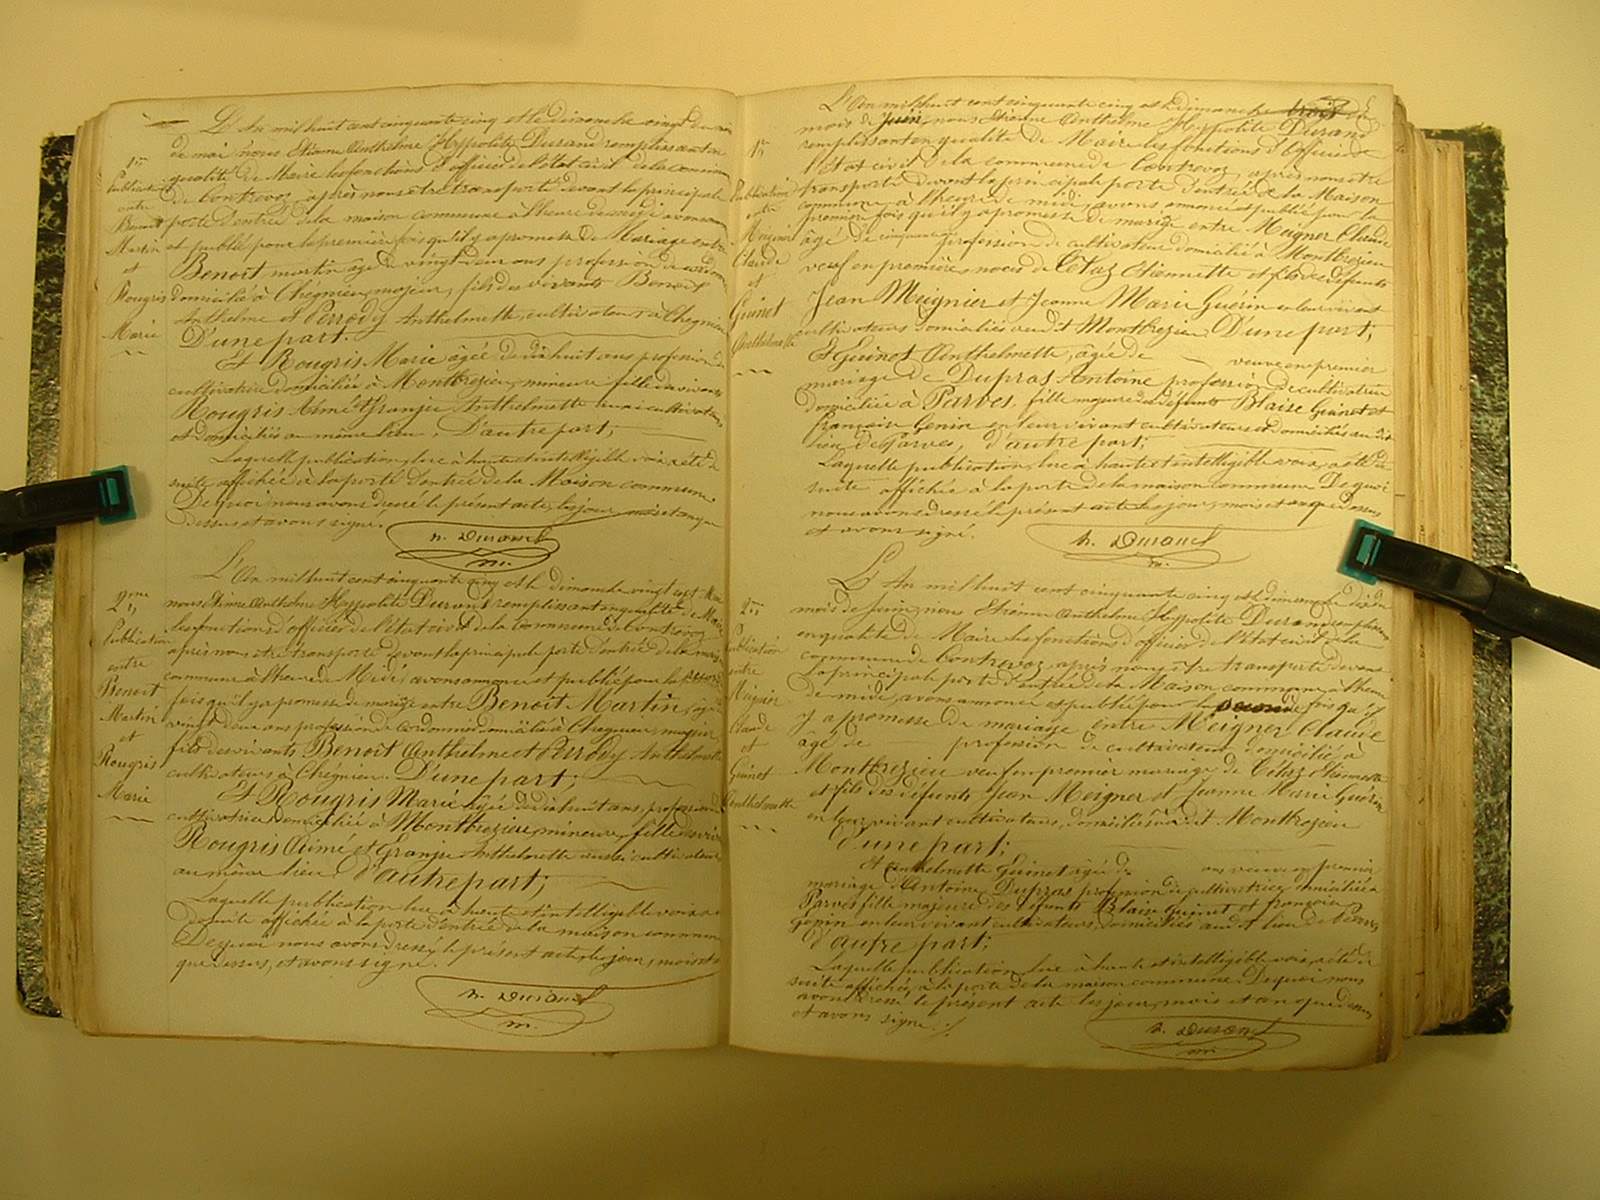 1ère
Publication
entre
Benoit
Martin
et
Rougris
Marie
L'An mil huit cent cinquante cinq et le dimanche vingt du mois
de mai nous Etienne Anthelme Hyppolite Durand remplissant en
qualité de Maire les fonctions d'officier de l'état civil de la commune
de Contrevoz, après nous être transporté devant la principale
porte d'entrée de la maison commune à l'heure de midi avons annoncé
et publié pour la première fois qu'il y a promesse de Mariage entre
Benoit martin âgé de vingt deux ans profession de cordonnier
domicilié à Chégnieu, majeur, fils des vivants Benoit
Anthelme et Perrody Anthelmette, cultivateurs à Chegnieu
D'une part.
Et Rougris Marie âgée de dix huit ans profession de
cultivatrice domiciliée à Montbrezieu, mineure fille des vivants
Rougris Aimé et Granju Anthelmette aussi cultivateurs
et domiciliés au même lieu, D'autre part;
Laquelle publication, lue à haute et intelligible voix a été de
suite affichée à la porte d'entrée de la Maison commune.
De quoi nous avons dressé le présent acte, les jour mois et an que
dessus et avons signé.
h. Durand
m.
2me
Publication
entre
Benoit
Martin
et
Rougris
Marie
L'An mil huit cent cinquante cinq et le dimanche vingt sept Mai
nous Etienne Anthelme Hyppolite Durand remplissant en qualité de Maire
les fonctions d'officier de l'état civil de la Commune de Contrevoz
après nous être transporté devant la principale porte d'entrée de la maison
commune à l'heure de Midi, avons annoncé et publié pour la
fois qu'il y a promesse de mariage entre Benoit Martin, âgé
vingt deux ans profession de cordonnier domicilié à Chegnieu, majeur,
fils des vivants Benoit Anthelme et Perrody Anthelmette
cultivateurs à Chégnieu. D'une part;
Et Rougris Marie âgée de dix huit ans, profession
cultivatrice domiciliée à Montbrezieu, mineure, fille des vivants
Rougris Aimé et Granju Anthelmette aussi cultivateurs
au même lieu, d'autre part;
Laquelle publication lue à haute et intelligible voix a
de suite affichée à la porte d'entrée de la maison commune
De quoi nous avons dressé le présent acte, les jour, mois et an
que dessus, et avons signé.
h. Durand
m.
1ère
Publication
entre
Meignier
Claude
et
Guinet
Anthelmette
L'An mil huit cent cinquante cinq et le dimanche trois du
mois de Juin, nous Etienne Anthelme Hyppolite Durand
remplissant en qualité de Maire les fonctions d'Officier de
l'état civil de la commune de Contrevoz, après nous être
transporté devant la principale porte d'entrée de la Maison
commune, à l'heure de midi, avons annoncé et publié pour la
première fois qu'il y a promesse de mariage entre Meigner Claude
âgé de cinquante profession de cultivateur domicilié à Montbrezieu
veuf en premières noces de Cetaz Etiennette et fils des défunts
Jean Meignier et Jeanne Marie Guérin en leur vivant
cultivateurs domiciliés au dit Montbrezieu, D'une part;
Et Guinet Anthelmette, âgée de veuve en premier
mariage de Dupras Antoine profession de cultivatrice
domiciliée à Parves, fille majeure des défunts Blaise Guinet et
Françoise Genin en leur vivant cultivateurs et domiciliés au dit
lieu de Parves, d'autre part;
Laquelle publication, lue à haute et intelligible voix, a été de
suite affichée à la porte de la maison commune De quoi
nous avons dressé le présent acte les jour, mois et an que dessus
et avons signé.
h. Durand
m.
2me
Publication
entre
Meignier
Claude
et
Guinet
Anthelmette
L'An mil huit cent cinquante cinq et le dimanche dix du
mois de Juin, nous Etienne Anthelme Hyppolite Durand remplissant
en qualité de Maire les fonctions d'officier de l'état civil de la
commune de Contrevoz, après nous être transporté devant
la principale porte d'entrée de la Maison commune, à l'heure
de midi, avons annoncé et publié pour la seconde fois qu'il
y a promesse de mariage entre Meigner Claude
âgé de profession de cultivateur domicilié à
Montbrezieu veuf en premier mariage de Cétaz Etiennette
et fils des défunts Jean Meigner et Jeanne Marie Guérin
en leur vivant cultivateurs, domiciliés au dit Montbrezieu
d'une part;
Et Anthelmette Guinet âgée de ans veuve en premier
mariage d'Antoine Dupras profession de cultivatrice domiciliée à
Parves fille majeure des défunts Blaise Guinet et françoise
genin en leur vivant cultivateurs, domiciliés au dit lieu de Parves
d'autre part;
Laquelle publication, lue à haute et intelligible voix, a été de
suite affichée, à la porte de la maison commune. De quoi nous
avons dressé le présent acte les jour, mois et an que dessus
et avons signé.
h. Durand
m.